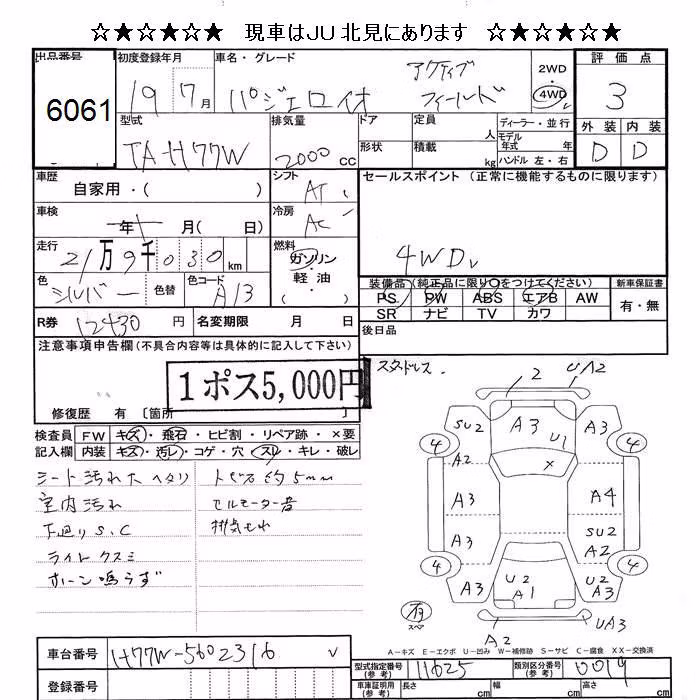 ☆★☆★☆☆ 現車はJU 北見にあります ☆★☆★☆☆
出品番号 初度登録年月 車名・グレード 評価点
6061 19 7月 パジェロイオ アクティブフィールド 2WD 4WD 3
型式 排気量 ドア 定員 人 ディーラー・並行 外装 内装
TA-H77W 2000 cc 形状 積載 kg モデル年式 年 ハンドル 左・右 D D
車歴 自家用・( ) シフト AT セールスポイント (正常に機能するものに限ります)
車検 年 月( 日) 冷房 AC
走行 21万9千030 km 燃料 ガソリン・軽油 4WD
( )
色 シルバー 色替 色コード A13 装備品(純正品に限り○をつけてください) 新車保証書
PS PW ABS エアB AW 有・無
SR ナビ TV カワ
R券 12430 円 名変期限 月 日 後日品
注意事項申告欄(不具合内容等は具体的に記入して下さい)
1ポス5,000円
修復歴 有 [箇所 ]
スタッドレス.
検査員 FW キズ・飛石・ヒビ割・リペア跡・×要
記入欄 内装 キズ・汚レ・コゲ・穴・スレ・キレ・破レ
シート汚れ大 ヘタリ
室内汚れ セルモーター音
下廻りS.C 排気もれ
ライトクスミ
ホーン鳴らず
2 UA2
SU2 A3 A3 U1
4 4
A2 ×
A3 A4
A3 SU2 A2
4 4
A3 U2 A1 U2 A3
有 スペア A2 UA3
A-キズ E-エクボ U-凹み W-補修跡 S-サビ C-腐食 XX-交換済
車台番号 H77W-5602316
型式指定番号(参考) 11625 類別区分番号(参考) 0019
登録番号 車庫証明用(参考) 長さ cm 幅 cm 高さ cm